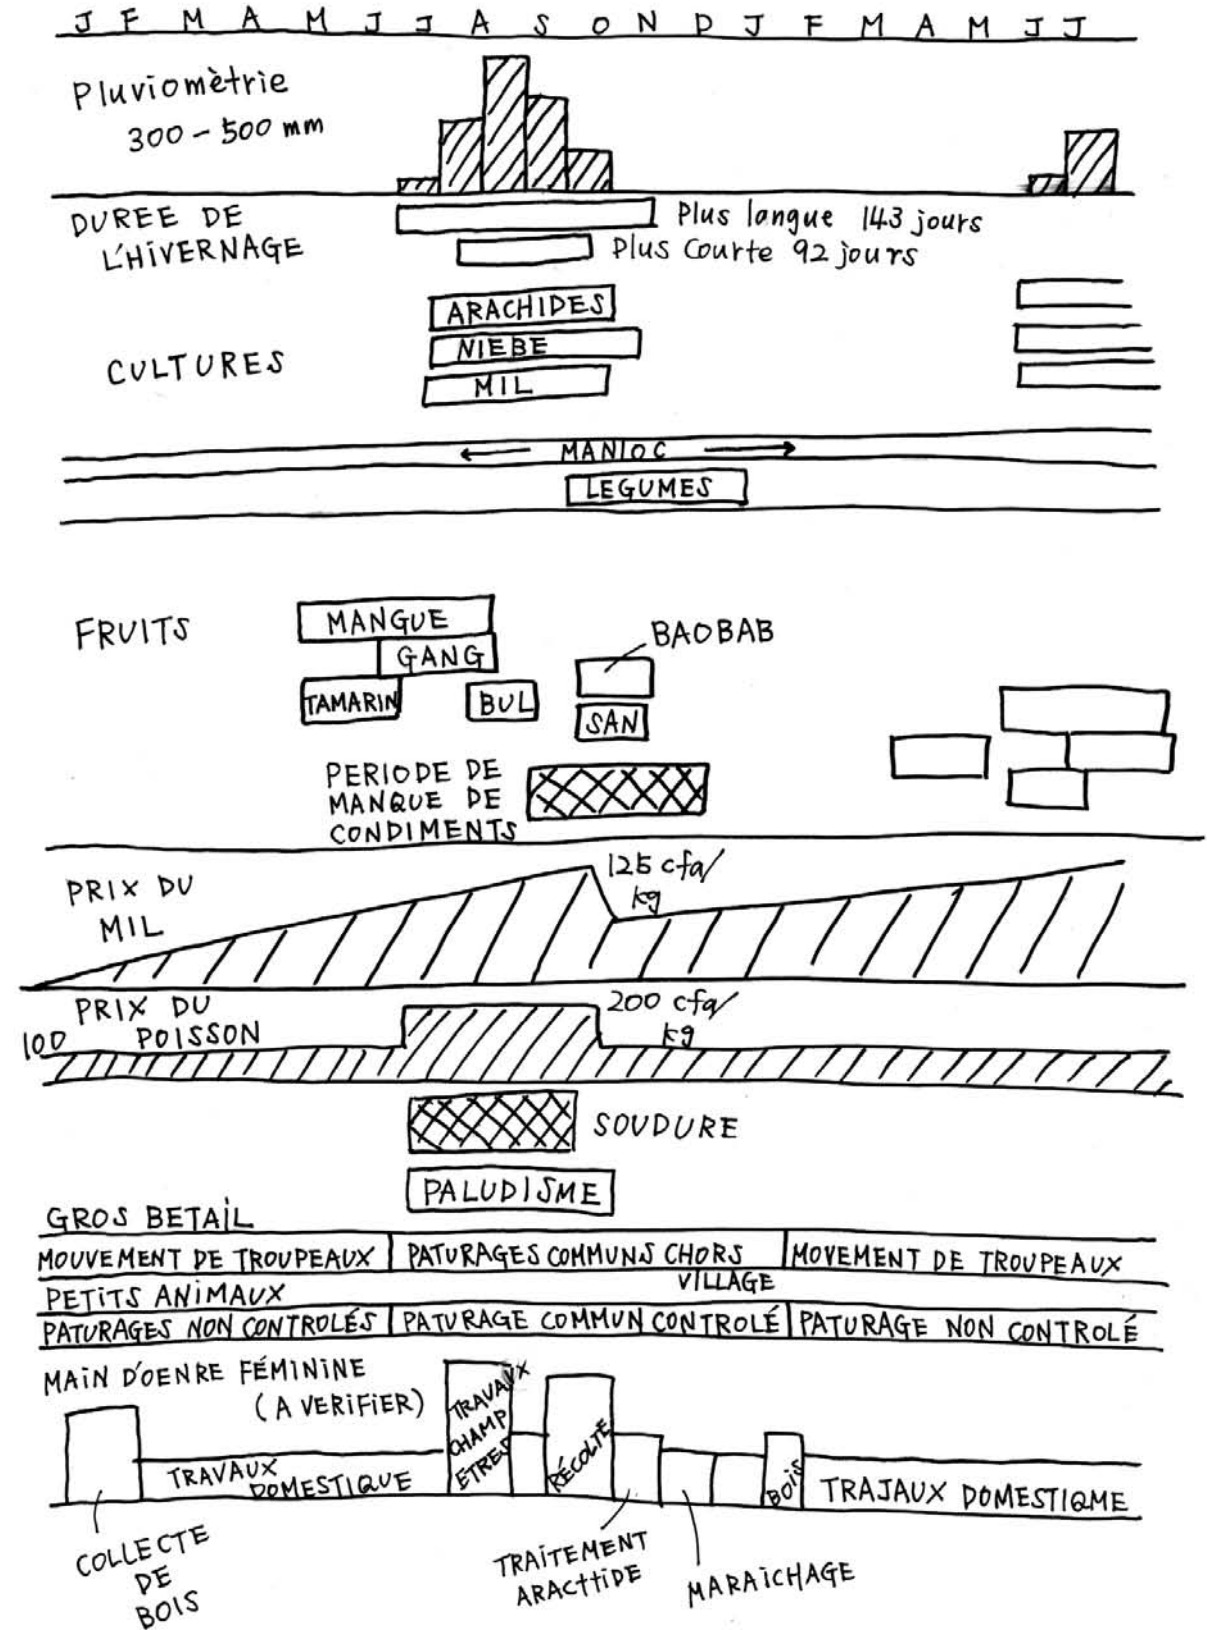 J F M A M J J A S O N D J F M A M J J
Pluviomètrie
300 - 500 mm
DUREE DE
L'HIVERNAGE
Plus langue 143 jours
Plus Courte 92 jours
CULTURES
ARACHIDES
NIEBE
MIL
← MANIOC →
LEGUMES
FRUITS
MANGUE
GANG
TAMARIN
BUL
BAOBAB
SAN
PERIODE DE
MANQUE DE
CONDIMENTS
PRIX DU
MIL
125 cfa/
kg
PRIX DU
POISSON
100
200 cfa/
kg
SOUDURE
PALUDISME
GROS BETAIL
MOUVEMENT DE TROUPEAUX PATURAGES COMMUNS CHORS MOVEMENT DE TROUPEAUX
VILLAGE
PETITS ANIMAUX
PATURAGES NON CONTROLÉS PATURAGE COMMUN CONTROLÉ PATURAGE NON CONTROLÉ
MAIN D'OENRE FÉMININE
(A VERIFIER)
TRAVAUX
DOMESTIQUE
TRAVAUX
CHAMP
ETRES
RÉCOLTE
BOIS
TRAJAUX DOMESTIQME
COLLECTE
DE
BOIS
TRAITEMENT
ARACTTIDE
MARAICHAGE